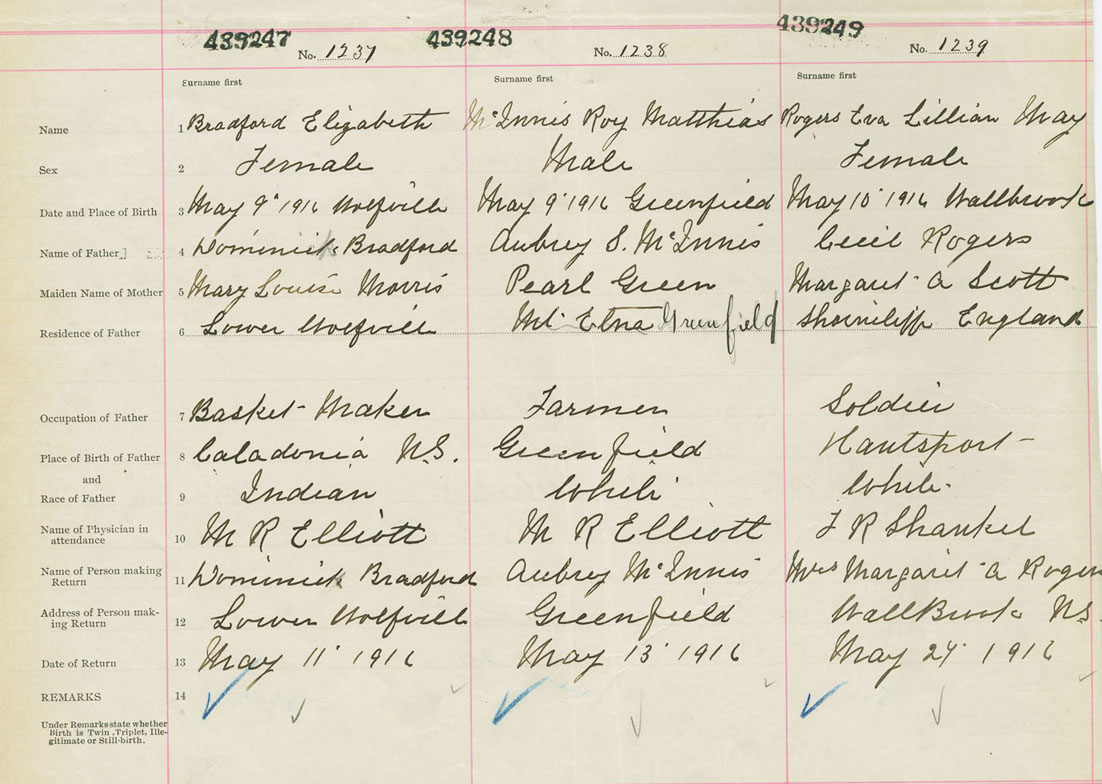 439247 No. 1237 439248 No. 1238 439249 No. 1239
Surname first Surname first Surname first
Name 1 Bradford Elizabeth McInnis Roy Matthias Rogers Eva Lillian May
Sex 2 Female Male Female
Date and Place of Birth 3 May 9" 1916 Wolfville May 9" 1916 Greenfield May 10" 1916 Wallbrook
Name of Father 4 Dominick Bradford Aubrey S. McInnis Cecil Rogers
Maiden Name of Mother 5 Mary Louise Morris Pearl Green Margaret A Scott
Residence of Father 6 Lower Wolfville Mt Etna Greenfield Shorncliffe England
Occupation of Father 7 Basket Maker Farmer Soldier
Place of Birth of Father 8 Caladonia N.S. Greenfield Hantsport
and
Race of Father 9 Indian White White
Name of Physician in
attendance 10 M R Elliott M R Elliott F R Shankel
Name of Person making
Return 11 Dominick Bradford Aubrey McInnis Mrs Margaret A Rogers
Address of Person mak-
ing Return 12 Lower Wolfville Greenfield WallBrook NS
Date of Return 13 May 11" 1916 May 13" 1916 May 24" 1916
REMARKS 14
Under Remarks state whether
Birth is Twin, Triplet, Ille-
gitimate or Still-birth.